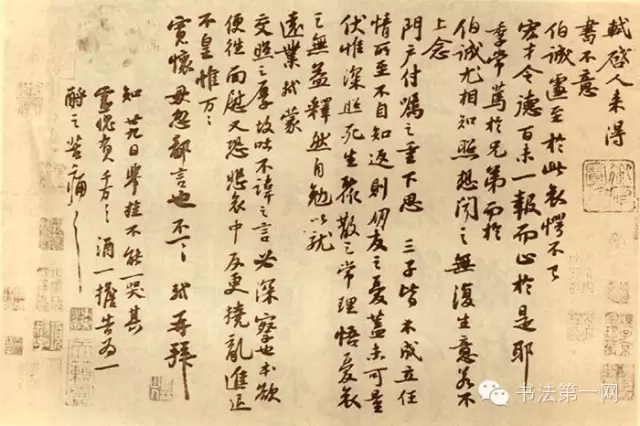 軾啓人來得
書不意
伯誠遽至於此哀愕不已
宏才令德百未一報而止於是耶
季常篤於兄弟而於
伯誠尤相知照想聞之無復生意若不
上念
門户付嘱之重下思三子皆未成立任
情所至不自知返則朋友之憂蓋未可量
伏惟深照死生聚散之常理悟憂哀
之無益釋然自勉以就
遠業軾蒙
交照之厚故吐不諱之言必深察也本欲
便往面慰又恐悲哀中反更撓亂進退
不皇惟万〻
寬懷毋忽鄙言也不一〻軾再拜
知廿九日舉挂不能一哭其
靈愧負千万〻酒一擔告為一
酹之苦痛〻
书法第一网